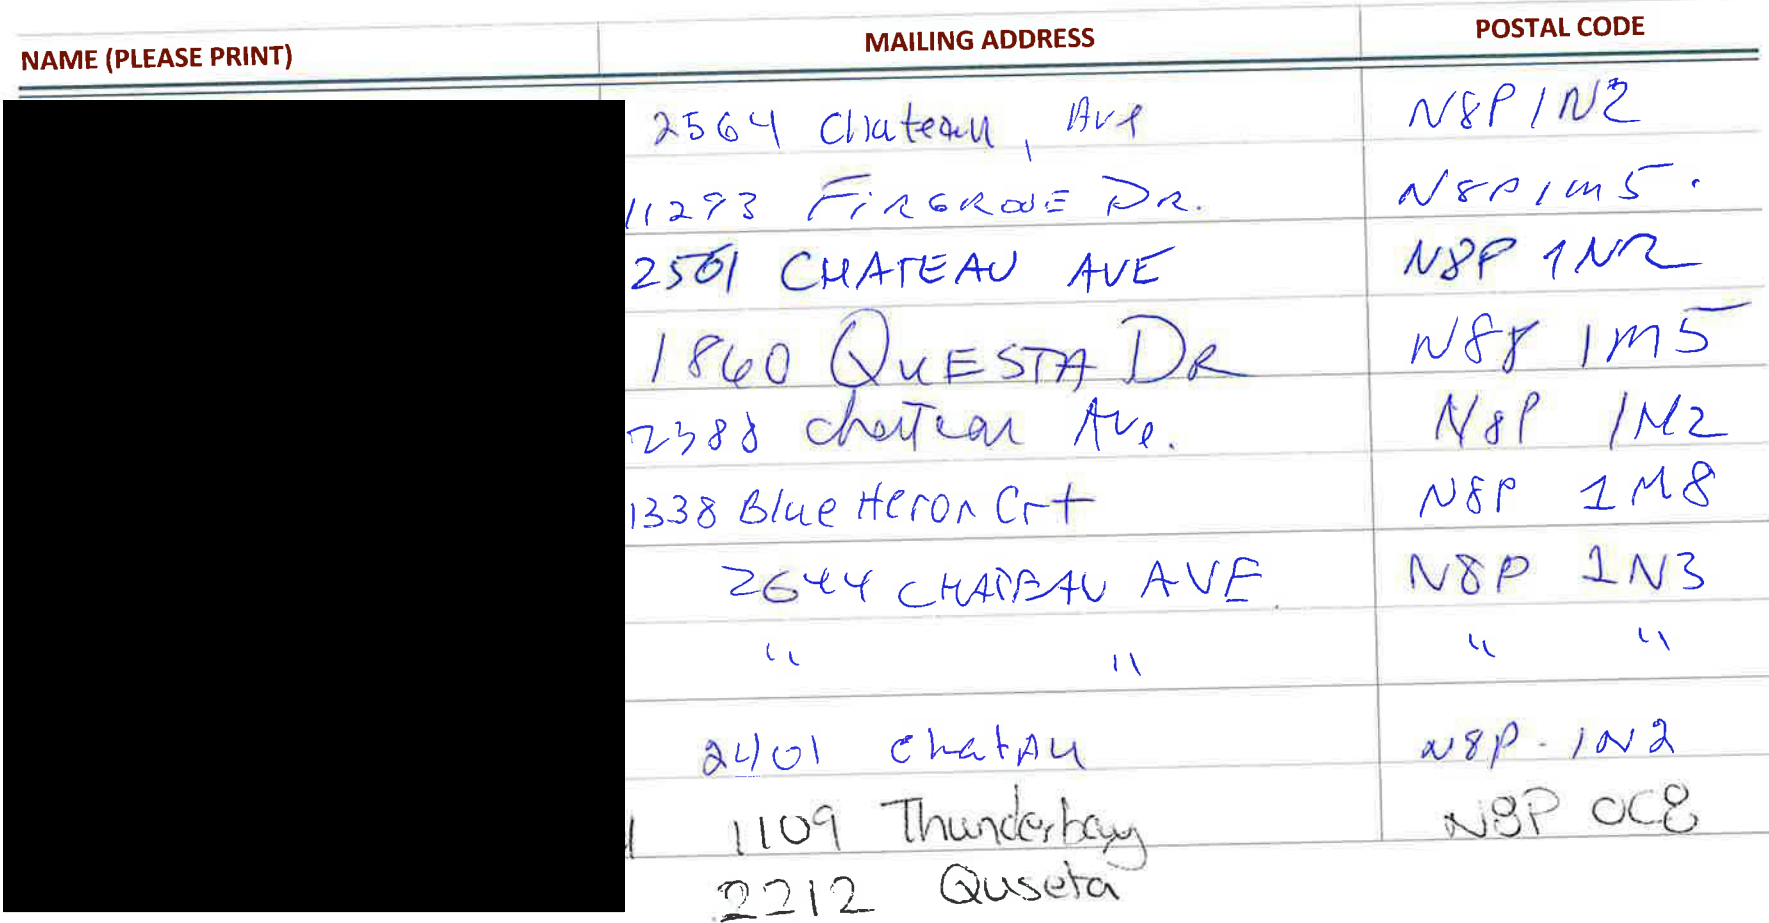 NAME (PLEASE PRINT) MAILING ADDRESS POSTAL CODE
2564 Chateau, Ave N8P 1N2
11293 FIRGROVE DR. N8P 1M5.
2561 CHATEAU AVE N8P 1N2
1860 QUESTA DR N8Y 1M5
2388 chateau Ave. N8P 1N2
1338 Blue Heron Crt N8P 1M8
2644 CHATEAU AVE N8P 1N3
" " " "
2401 chatAu N8P-1N2
1109 Thunderbay N8P 0C8
2212 Quseta